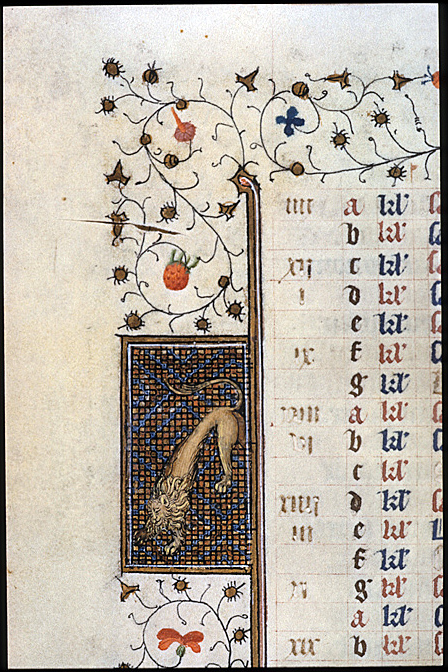 iiii a kl'
b kl'
xii c kl'
i d kl'
e kl'
ix f kl'
g kl'
xvii a kl'
vi b kl'
c kl'
xiiii d kl'
iii e kl'
f kl'
xi g kl'
a kl'
xix b kl'